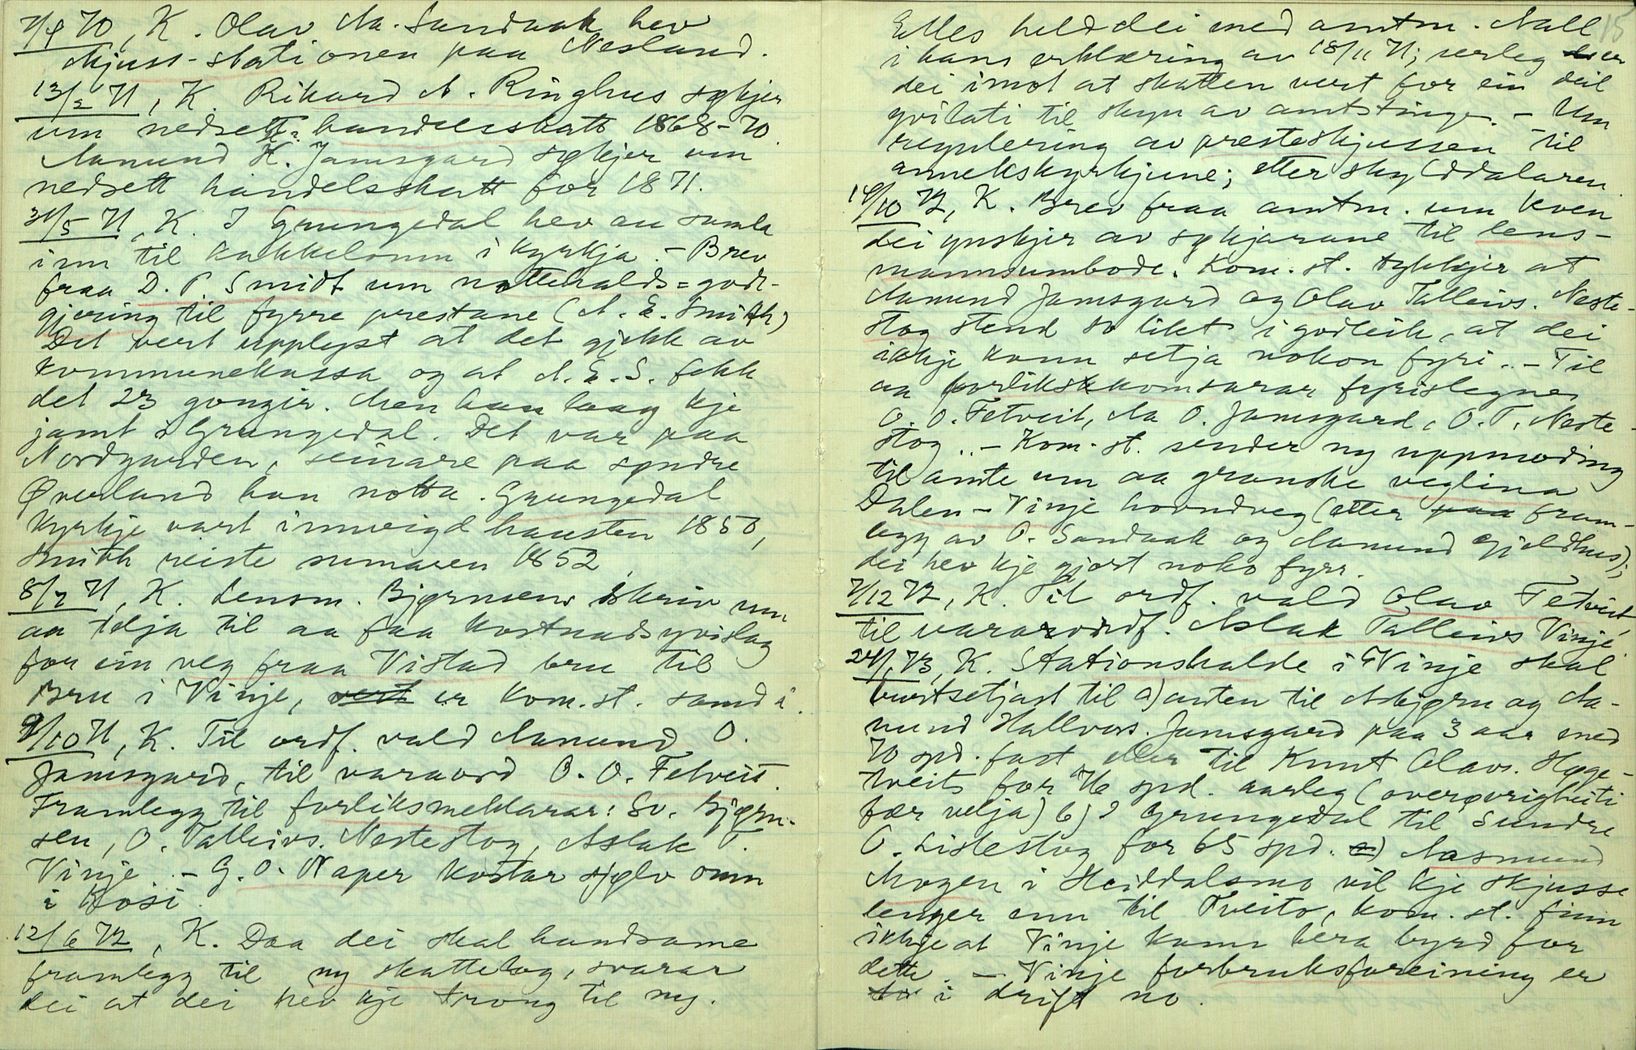 7/9 70, K. Olav Aa. Sandaak hev
skjuss-stationen paa Nesland.
13/2 71, K. Rikard A. Ringhus søkjer
um nedsett handelsskatt 1868-70.
Aamund K. Jamsgard søkjer um
nedsett handelsskatt for 1871.
31/5 71, K. I Grungedal hev au samla
inn til kakkelomn i kyrkja. - Brev
fraa D. P. Smidt um nattehalds=godt-
gjering til fyrre prestane (A. E. Smith)
Det vert upplyst at det gjekk av
kommunekassa og at A. E. S. fekk
det 23 gongir. Men han laag kje
jamt i Grungedal. Det var paa
Nordgarden, seinare paa søndre
Øverland han notta. Grungedal
kyrkje vart innvigd hausten 1850,
Smith reiste sumaren 1852
8/7 71, K. Lensm. Bjørnsens skriv um
aa telja til aa faa kostnadsyvislag
for ein veg fraa Vistad bru til
Bru i Vinje, vert er kom.st. samd i.
9/10 71, K. Til ordf. vald Aamund O.
Jamsgard, til varaord O. O. Fetveit
Framlegg til forliksmeklarar: Sv. Bjørn-
sen, O. Talleivs. Nestestog, Aslak T.
Vinje - G. O. Naper kostar sjølv omn
i Kosi.
12/6 72, K. Daa dei skal handsama
framlegg til ny skattelog, svarar
dei at dei hev kje trong til ny.
15
Elles held dei med amtm. Aall
i hans erklæring av 18/11 71; serleg er
dei imot at skatten vert for ein deil
yvilati til skyn av amtstinge. - Um
regulering av presteskjussen til
annekskyrkjune; etter sky(ddalaren.
14/10 72, K. Brev fraa amtm. um kven
dei ynskjer av søkjarane til lens-
mannsumbode. Kom. st. tykkjer at
Aamund Jamsgard og Olav Talleivs. Neste-
stog stend so likt i godleik, at dei
ikkje kann setja nokon fyri. - Til
aa forlikskomsarar fyrislegne
O. O. Fetveit, Aa O. Jamsgard, O. T. Neste-
stog. - Kom. st. sender ny uppmoding
til amte um aa granske veglina
Dalen - Vinje hovudveg (etter paa fram-
legg av O. Sandaak og Aamund Gjeldhus);
dei hev kje gjort noko fyrr.
7/12 72, K. Til ordf. vald Olav Fetveit,
til varaordf. Aslak Talleivs Vinje.
24/1 73, K. Stationshalde i Vinje skal
burtsetjast til a) anten til Asbjørn og Aa-
mund Hallvors. Jamsgard paa 3 aar med
70 spd. fast, eller til Knut Olavs. Hyge-
tveit for 76 spd. aarleg (overøvrigheiti
fær velja) b) i Grungedal til Sundre
O. Listestog for 65 spd. c) Aasmund
Mogen i Heiddalsmo vil kje skjusse
lenger enn til Tveito, kom. st. finn
ikkje at Vinje kann bera byrd for
dette. - Vinje forbruksforeining er
i drift no.